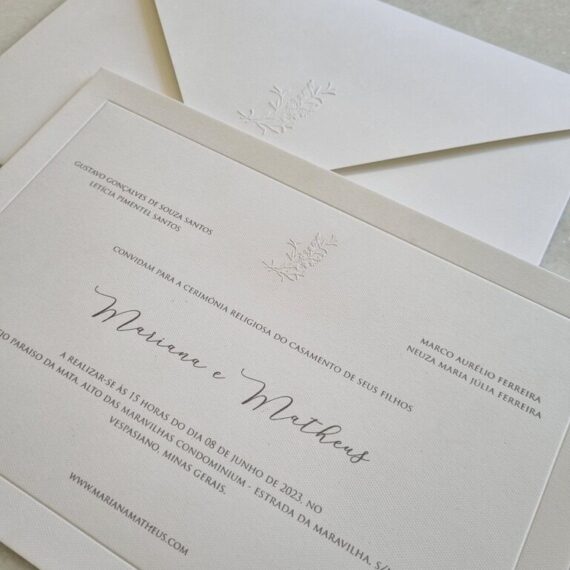 GUSTAVO GONÇALVES DE SOUZA SANTOS
LETÍCIA PIMENTEL SANTOS
MARCO AURÉLIO FERREIRA
NEUZA MARIA JÚLIA FERREIRA
CONVIDAM PARA A CERIMÔNIA RELIGIOSA DO CASAMENTO DE SEUS FILHOS
Mariana e Matheus
A REALIZAR-SE ÀS 15 HORAS DO DIA 08 DE JUNHO DE 2023, NO
PARAÍSO DA MATA, ALTO DAS MARAVILHAS CONDOMINIUM - ESTRADA DA MARAVILHA, S/
VESPASIANO, MINAS GERAIS.
WWW.MARIANAMATHEUS.COM